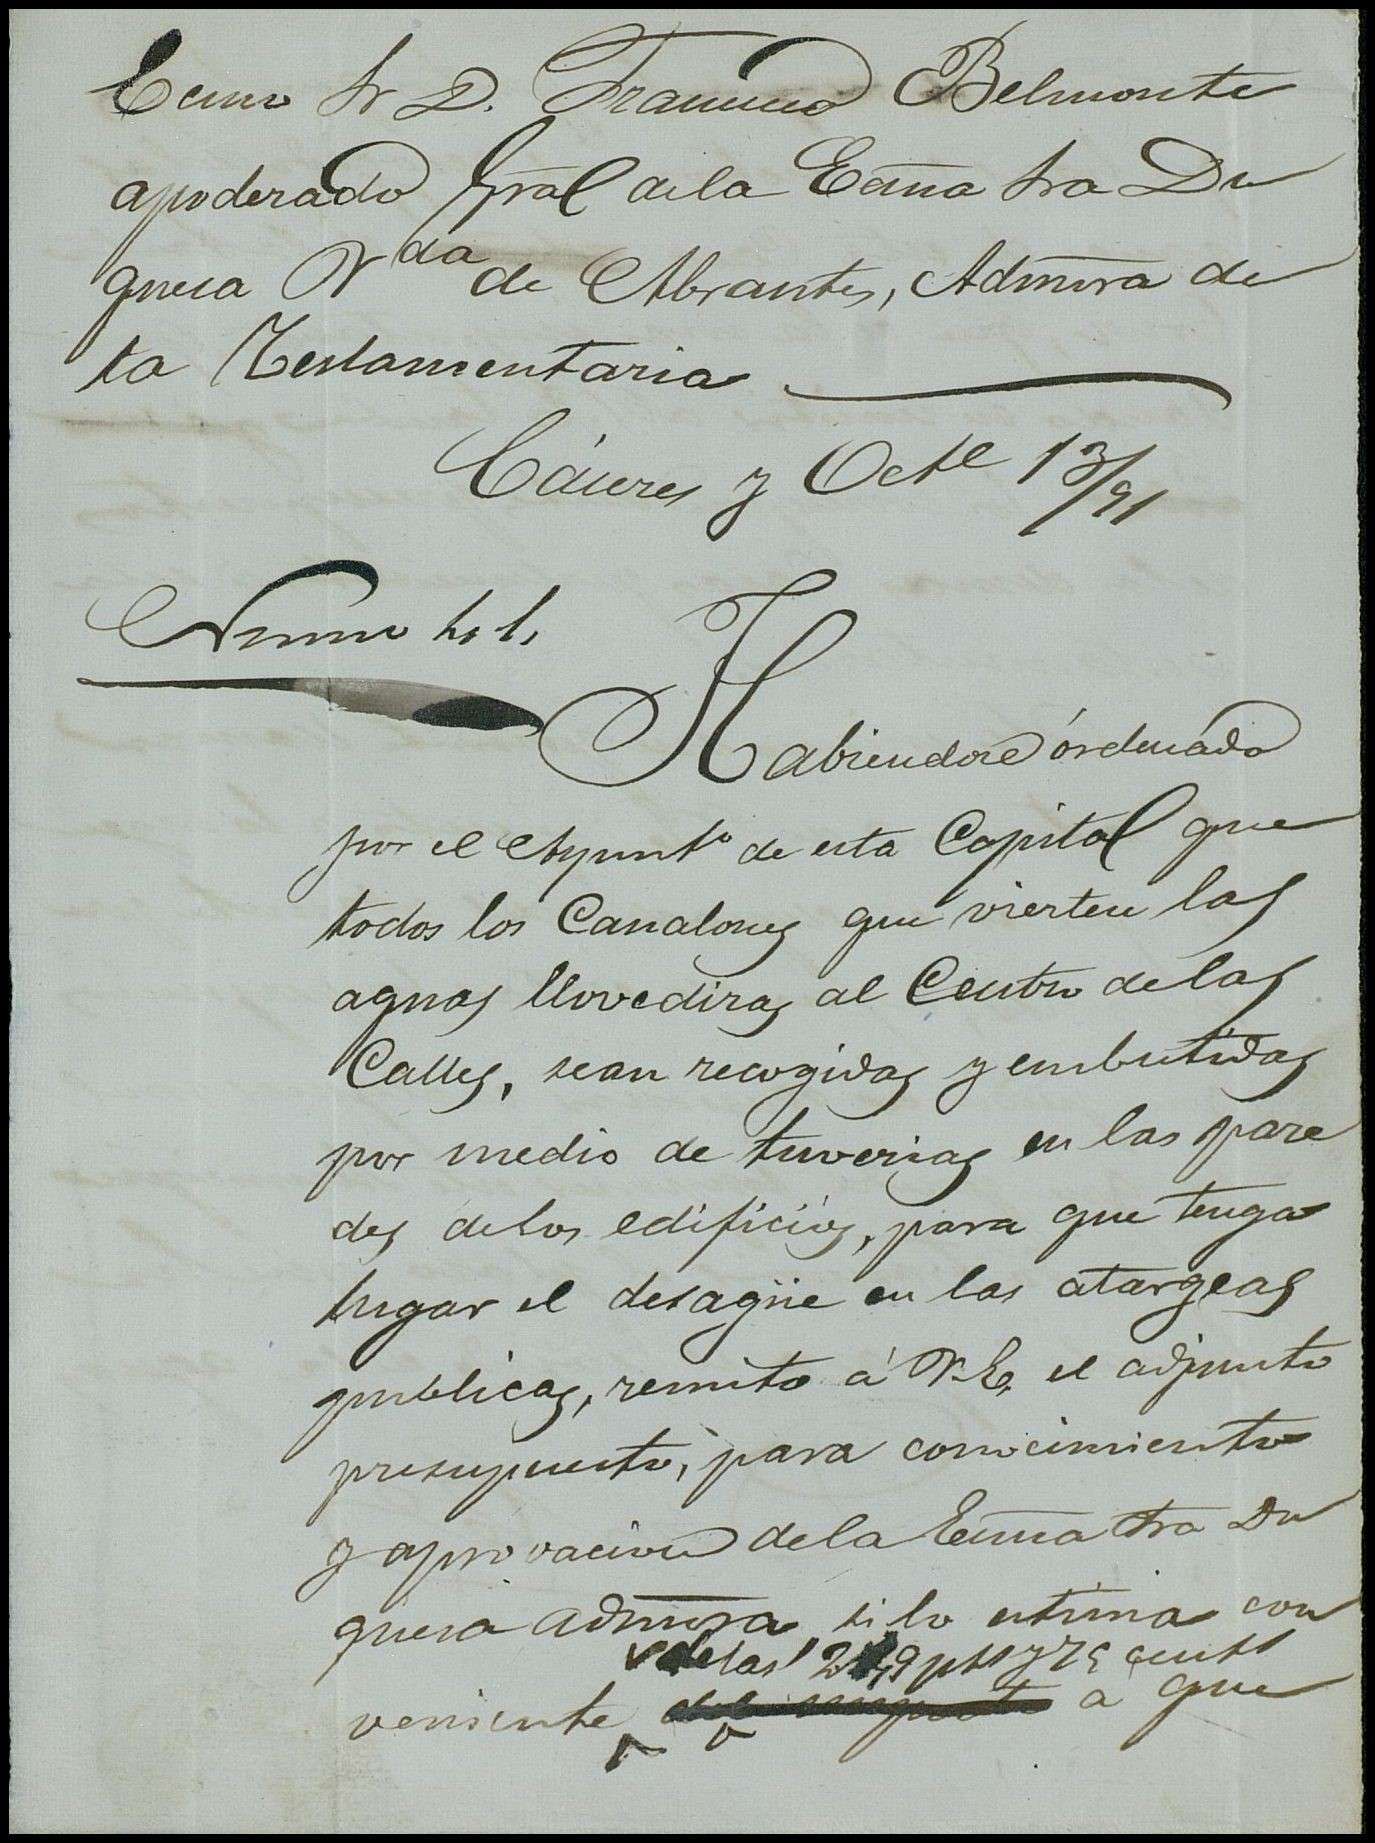 Ecmo Sr D. Francisco Belmonte
apoderado Gral dela Ecma Sra Du
quesa Vda de Abrantes, Admora de
la Testamentaria
Cáceres y Octe 13/91
Numo
Habiendose órdenado
por el Ayunto de esta Capital que
todos los Canalones que vierten las
aguas llovedizas al Centro de las
Calles, sean recogidas y embutidas
por medio de tuverias en las pare
des delos edificios, para que tenga
lugar el desagüe en las atargeas
publicas, remito á V.E. el adjunto
presupuesto, para conocimiento
y aprovacion dela Ecma Sra Du
quesa admora si lo estima con
delas pts y 75 cents
veniente á que